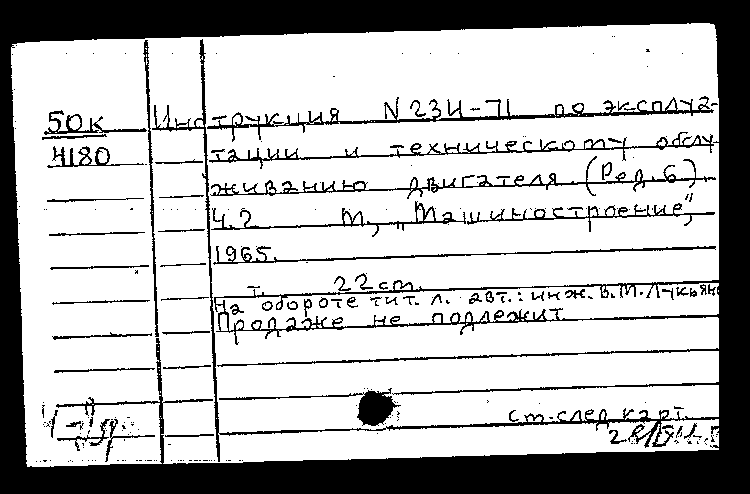 50к Инструкция N 23И-71 по эксплуа-
4180 тации и техническому обслу
живанию двигателя (Ред. 6).
Ч.2 М, „Машиностроение",
1965.
т. 22 cm.
На обороте тит. л. авт.: инж. В.М. Лукьян
Продаже не подлежит.
см. след. карт.